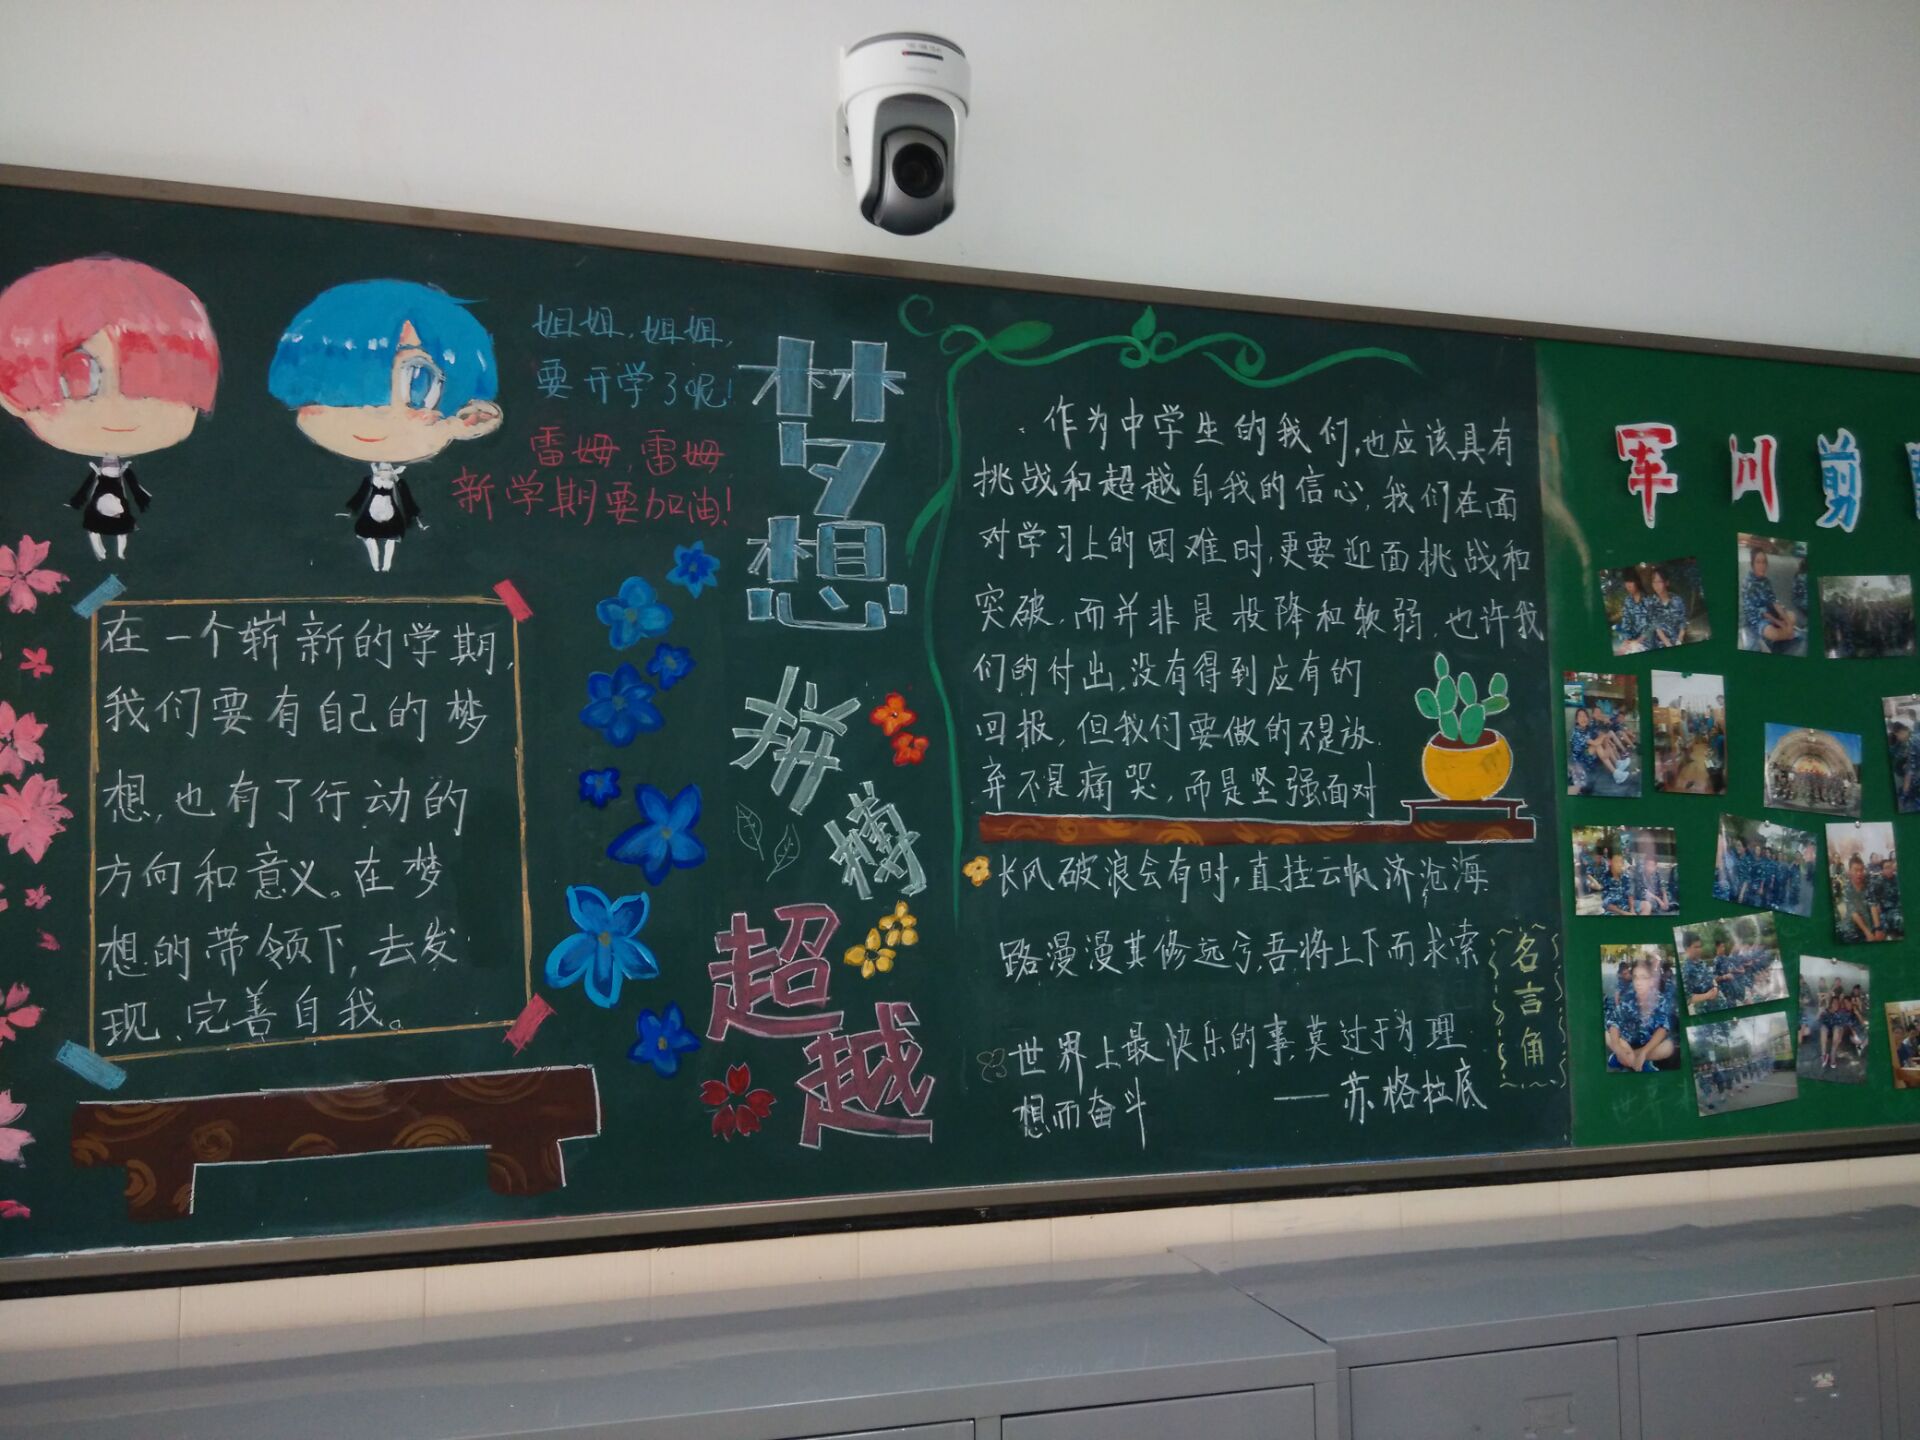 姐姐,姐姐,
要开学了呢!
雷姆,雷姆
新学期要加油!
在一个崭新的学期,
我们要有自己的梦
想,也有了行动的
方向和意义。在梦
想的带领下,去发
现、完善自我。
梦想
拼搏
超越
作为中学生的我们,也应该具有
挑战和超越自我的信心,我们在面
对学习上的困难时,更要迎面挑战和
突破,而并非是投降和软弱,也许我
们的付出,没有得到应有的
回报,但我们要做的不是放
弃不是痛哭,而是坚强面对
长风破浪会有时,直挂云帆济沧海
路漫漫其修远兮,吾将上下而求索
世界上最快乐的事,莫过于为理
想而奋斗 ——苏格拉底
名言角
军训剪